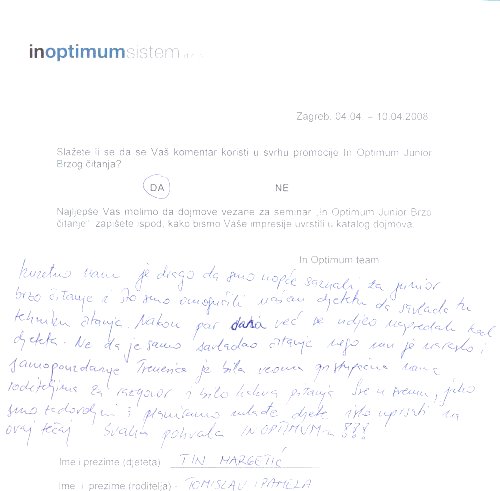 inoptimumsistem
Zagreb, 04.04. – 10.04.2008
Slažete li se da se Vaš komentar koristi u svrhu promocije In Optimum Junior
Brzog čitanja?
DA NE
Najljepše Vas molimo da dojmove vezane za seminar „In Optimum Junior Brzo
čitanje“ zapišete ispod, kako bismo Vaše impresije uvrstili u katalog dojmova.
In Optimum team
Izuzetno nam je drago da smo uopće saznali za junior
brzo čitanje i što smo omogućili našem djetetu da savlada tu
tehniku čitanja. Nakon par dana već se vidio napredak kod
djeteta. Ne da je samo savladao čitanje nego mu je naraslo i
samopouzdanje. Trenerica je bila veoma pristupačna nama
roditeljima za razgovor i bilo kakva pitanja. Sve u svemu, jako
smo zadovoljni i planiramo mlađe dijete isto upisati na
ovaj tečaj. Svaka pohvala INOPTIMUM-u !!!
Ime i prezime (djeteta) TIN MARGETIĆ
Ime i prezime (roditelja) TOMISLAV